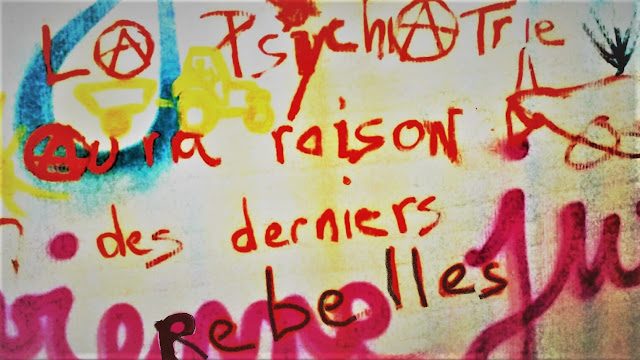 LA PsychiATrie
Aura raison
des derniers
Rebelles